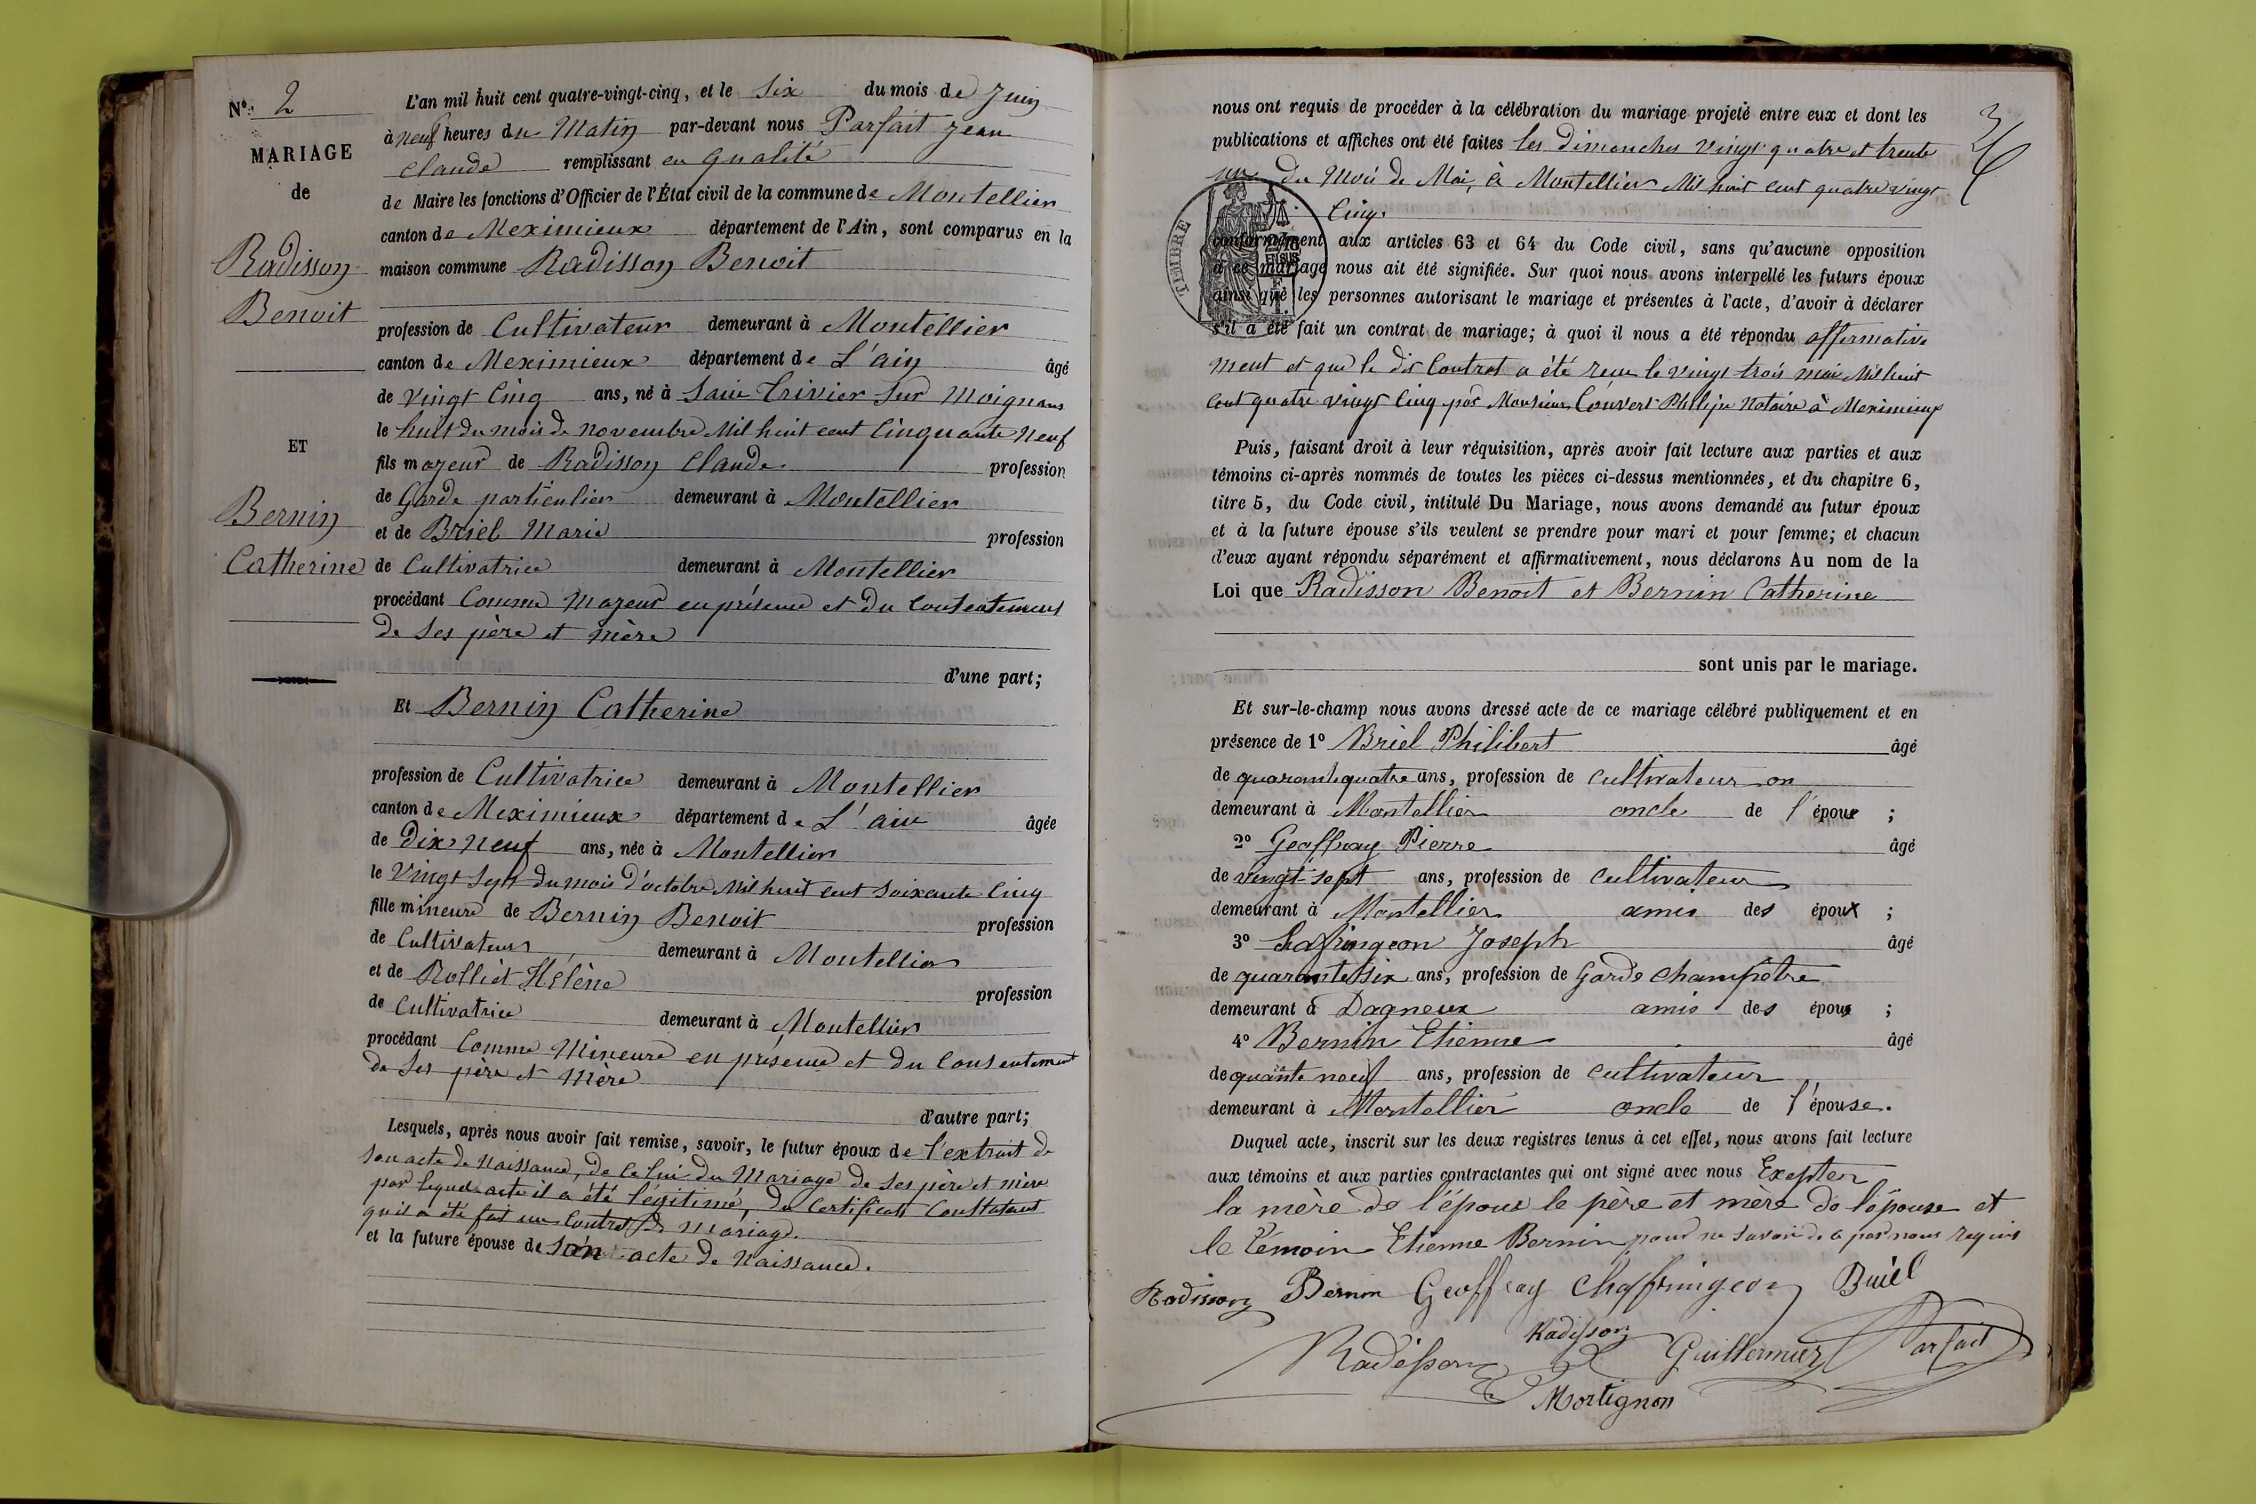 N° 2
MARIAGE
de
Radisson
Benoit
ET
Bernin
Catherine
L'an mil huit cent quatre-vingt-cinq, et le six du mois de Juin
à neuf heures du Matin par-devant nous Parfait Jean
Claude remplissant en qualité
de Maire les fonctions d'Officier de l'État civil de la commune de Montellier
canton de Meximieux département de l'Ain, sont comparus en la
maison commune Radisson Benoit
profession de Cultivateur demeurant à Montéllier
canton de Meximieux département de L'ain âgé
de vingt Cinq ans, né à Sain Trivier sur Moignans
le huit du mois de novembre Mil huit cent Cinquante Neuf
fils majeur de Radisson Claude profession
de Garde particulier demeurant à Montellier
et de Briel Marie profession
de Cultivatrice demeurant à Montellier
procédant Comme Majeur en présence et du Consentement
de ses père et mère
d'une part;
Et Bernin Catherine
profession de Cultivatrice demeurant à Montellier
canton de Meximieux département de L'ain âgée
de Dix Neuf ans, née à Montellier
le Vingt Sept du mois d'octobre Mil huit cent Soixante Cinq
fille mineure de Bernin Benoit profession
de Cultivateur demeurant à Montellier
et de Rolliet Hélène profession
de Cultivatrice demeurant à Montellier
procédant Comme Mineure en présence et du Consentement
de Ses père et Mère
d'autre part;
Lesquels, après nous avoir fait remise, savoir, le futur époux de l'extrait de
son acte de Naissance, de Celui du Mariage de ses père et mère
par lequel acte il a été légitimé, du Certificat Constatant
qu'il a été fait un Contrat de Mariage.
et la future épouse de son acte de Naissance.
nous ont requis de procéder à la célébration du mariage projeté entre eux et dont les
publications et affiches ont été faites les dimanches vingt quatre et trente
un du Mois de Mai, à Montellier Mil huit cent quatre vingt
Cinq.
TIMBRE
conformément aux articles 63 et 64 du Code civil, sans qu'aucune opposition
à ce mariage nous ait été signifiée. Sur quoi nous avons interpellé les futurs époux
ainsi que les personnes autorisant le mariage et présentes à l'acte, d'avoir à déclarer
s'il a été fait un contrat de mariage; à quoi il nous a été répondu affirmative
ment et que le dit Contrat a été reçu le vingt trois mai Mil huit
cent quatre vingt Cinq par Monsieur Convert Philipe Notaire à Meximieux
Puis, faisant droit à leur réquisition, après avoir fait lecture aux parties et aux
témoins ci-après nommés de toutes les pièces ci-dessus mentionnées, et du chapitre 6,
titre 5, du Code civil, intitulé Du Mariage, nous avons demandé au futur époux
et à la future épouse s'ils veulent se prendre pour mari et pour femme; et chacun
d'eux ayant répondu séparément et affirmativement, nous déclarons Au nom de la
Loi que Radisson Benoit et Bernin Catherine
sont unis par le mariage.
Et sur-le-champ nous avons dressé acte de ce mariage célébré publiquement et en
présence de 1° Briel Philibert âgé
de quarante quatre ans, profession de cultivateur on
demeurant à Montellier oncle de l'époux ;
2° Geoffray Pierre âgé
de vingt-sept ans, profession de cultivateur
demeurant à Montellier amis des époux ;
3° Chafringeon Joseph âgé
de quarante six ans, profession de Garde champêtre
demeurant à Dagneux amis des époux ;
4° Bernin Etienne âgé
de quarante neuf ans, profession de cultivateur
demeurant à Montellier oncle de l'épouse.
Duquel acte, inscrit sur les deux registres tenus à cet effet, nous avons fait lecture
aux témoins et aux parties contractantes qui ont signé avec nous Excepter
la mère de l'époux le père et mère de l'épouse et
le témoin Etienne Bernin pour ne savoir de a par nous requis
Radisson Bernin Geoffray Chaffringeon Briel
Radisson Radisson Guillermier Parfait
Mortignon